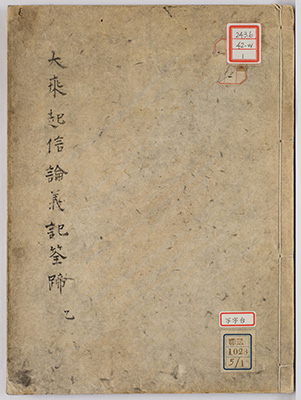 大乘起信論義記筌蹄 乙
243.6
42-W
1
写字台
1023
5/1